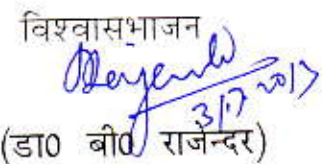 विश्वासभाजन
3/7/2017
(डा0 बी0 राजेन्दर)